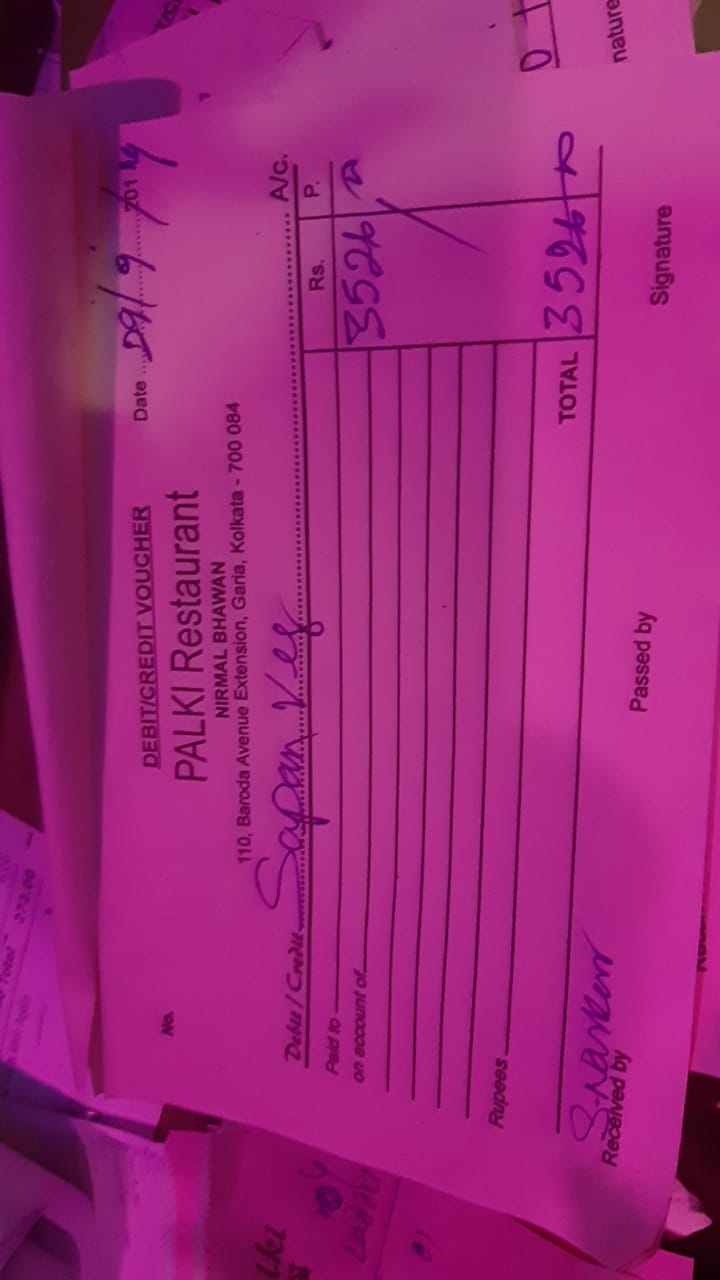 DEBIT/CREDIT VOUCHER
PALKI Restaurant
NIRMAL BHAWAN
110, Baroda Avenue Extension, Garia, Kolkata - 700 084
No.
Date 09/9/2019
Debit / Credit Sapan Veg A/c.
Rs. P.
Paid to
on account of 3526
Rupees
TOTAL 3526
S. Narken
Received by Passed by Signature
nature
Total 272.00